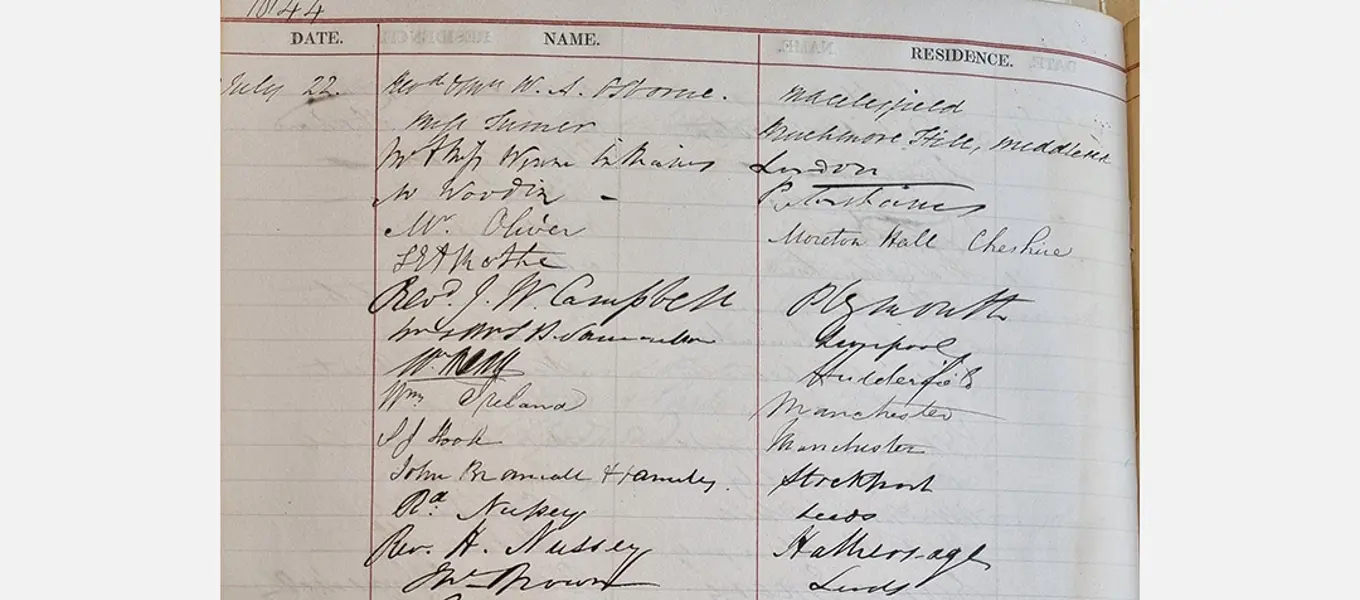 1844
DATE. NAME. RESIDENCE.
July 22. Revd & Mrs W. A. Osborne. Macclesfield
Miss Turner Muchmore Hill, Middlesex
Mr & Miss Winne London
W Woodin -
Mr. Oliver Moreton Hall Cheshire
Revd. J. W. Campbell Plymouth
Mr & Mrs Liverpool
Wm Huddersfield
Wm Ireland Manchester
Hook Manchester
John Bramall & Family. Stockport
Rd Nussey Leeds
Rev. H. Nussey Hathersage
Jno Brown Leeds